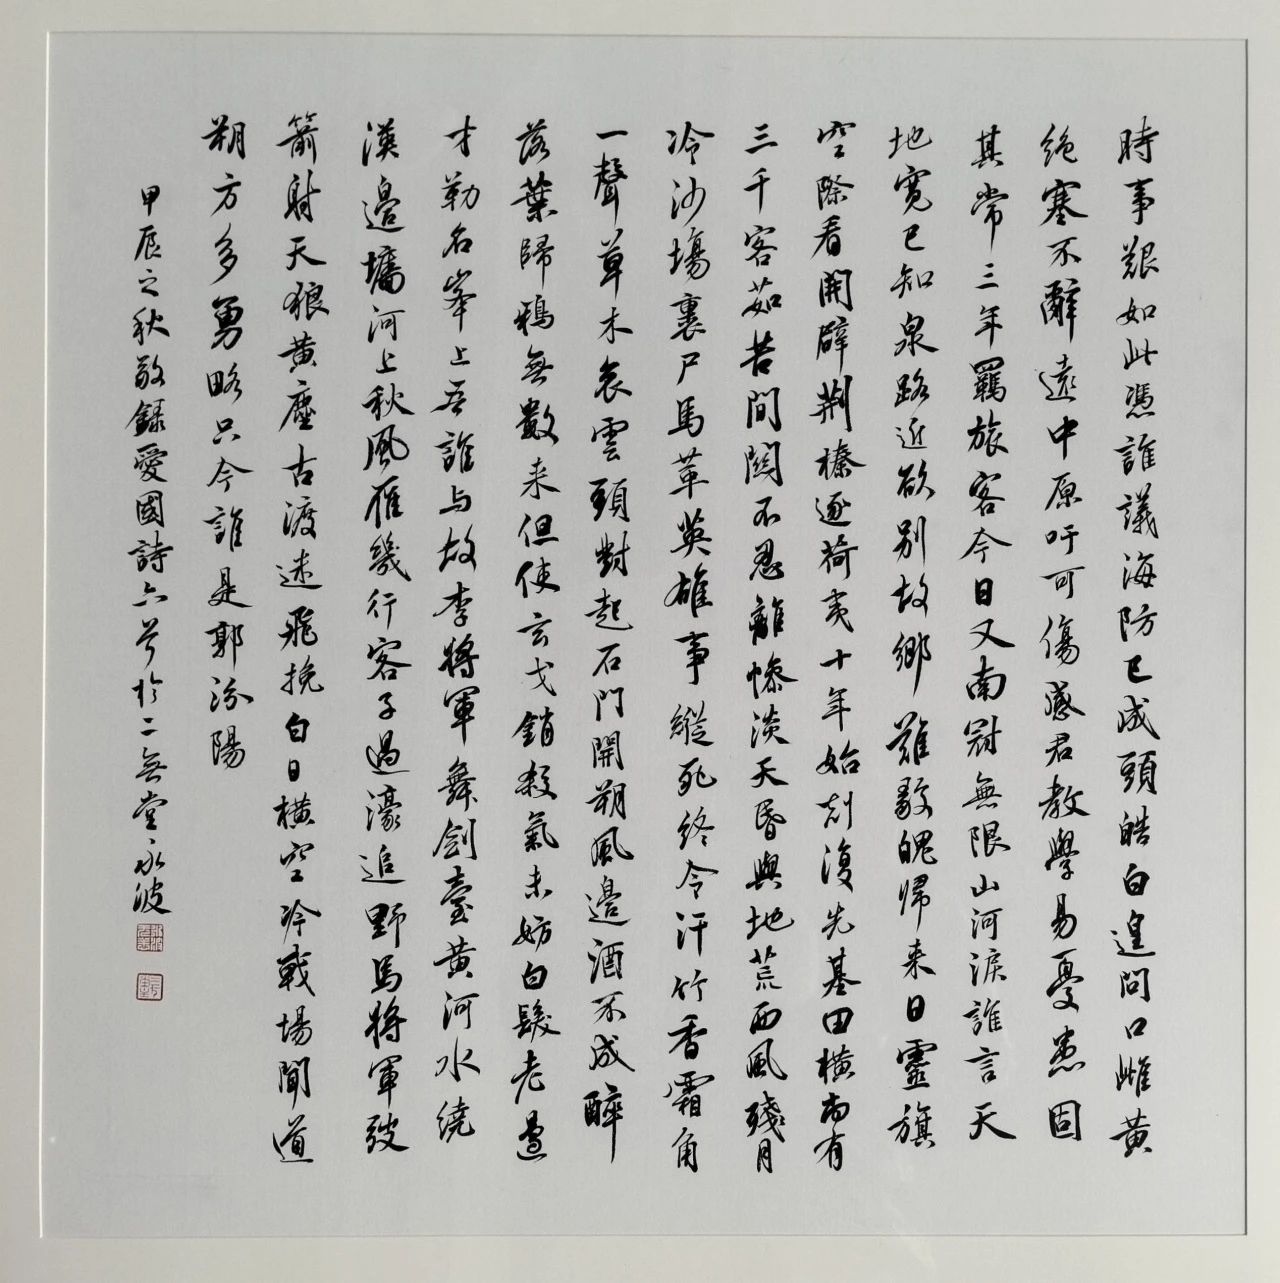 時事艱如此憑誰議海防已成頭皓白遑問口雌黃
絕塞不辭遠中原吁可傷感君教學易憂患固
其常三年羈旅客今日又南冠無限山河淚誰言天
地寬已知泉路近欲别故鄉難毅魄歸来日靈旗
空際看開闢荊榛逐荷夷十年始剋復先基田橫尚有
三千客茹苦間關不忍離慘淡天昏與地荒西風殘月
冷沙場裹尸馬革英雄事縱死終令汗竹香霜角
一聲草木哀雲頭對起石門開朔風邊酒不成醉
落葉歸鴉無數来但使玄戈銷殺氣未妨白髮老邊
才勒名峯上吾誰与故李將軍舞劍臺黃河水繞
漢邊墻河上秋風雁幾行客子過濠追野馬將軍弢
箭射天狼黃塵古渡迷飛挽白日橫空冷戰場聞道
朔方多勇略只今誰是郭汾陽
甲辰之秋敬錄愛國詩六首於二無堂永波